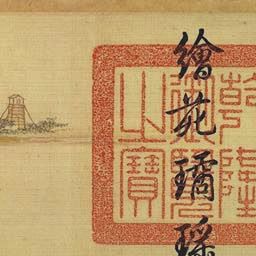 繪苑璚瑤
乾隆
御覽
之寶